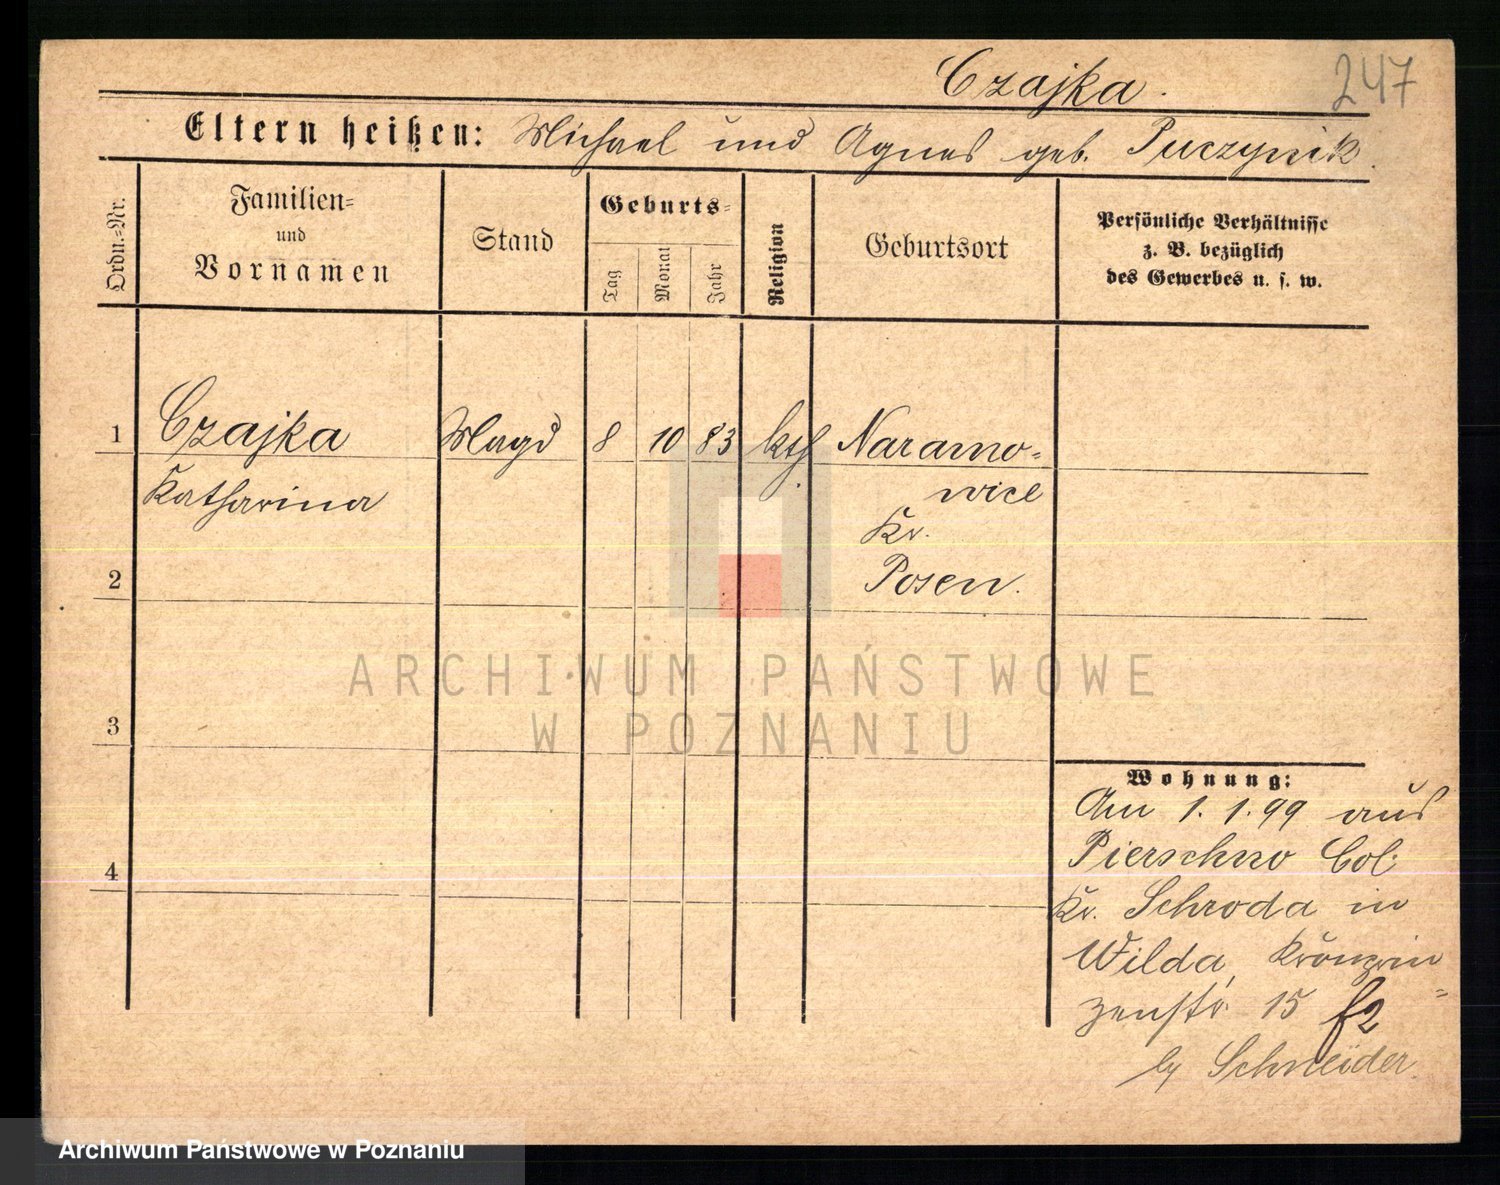 Czajka.
247
Eltern heißen: Michael und Agnes geb. Puczynik.
Ordn.=Nr.
Familien=
und
Vornamen
Stand
Geburts=
Tag
Monat
Jahr
Religion
Geburtsort
Persönliche Verhältnisse
z. B. bezüglich
des Gewerbes u. s. w.
1 Czajka Magd 8 10 83 kth. Naramo=
Katharina wice
Kr.
2 Posen.
ARCHIWUM PAŃSTWOWE
W POZNANIU
3
4
Wohnung:
Am 1.1.99 aus
Pierschno Col.
Kr. Schroda in
Wilda, Kronprin=
zenstr. 15 f2
by Schneider.
Archiwum Państwowe w Poznaniu